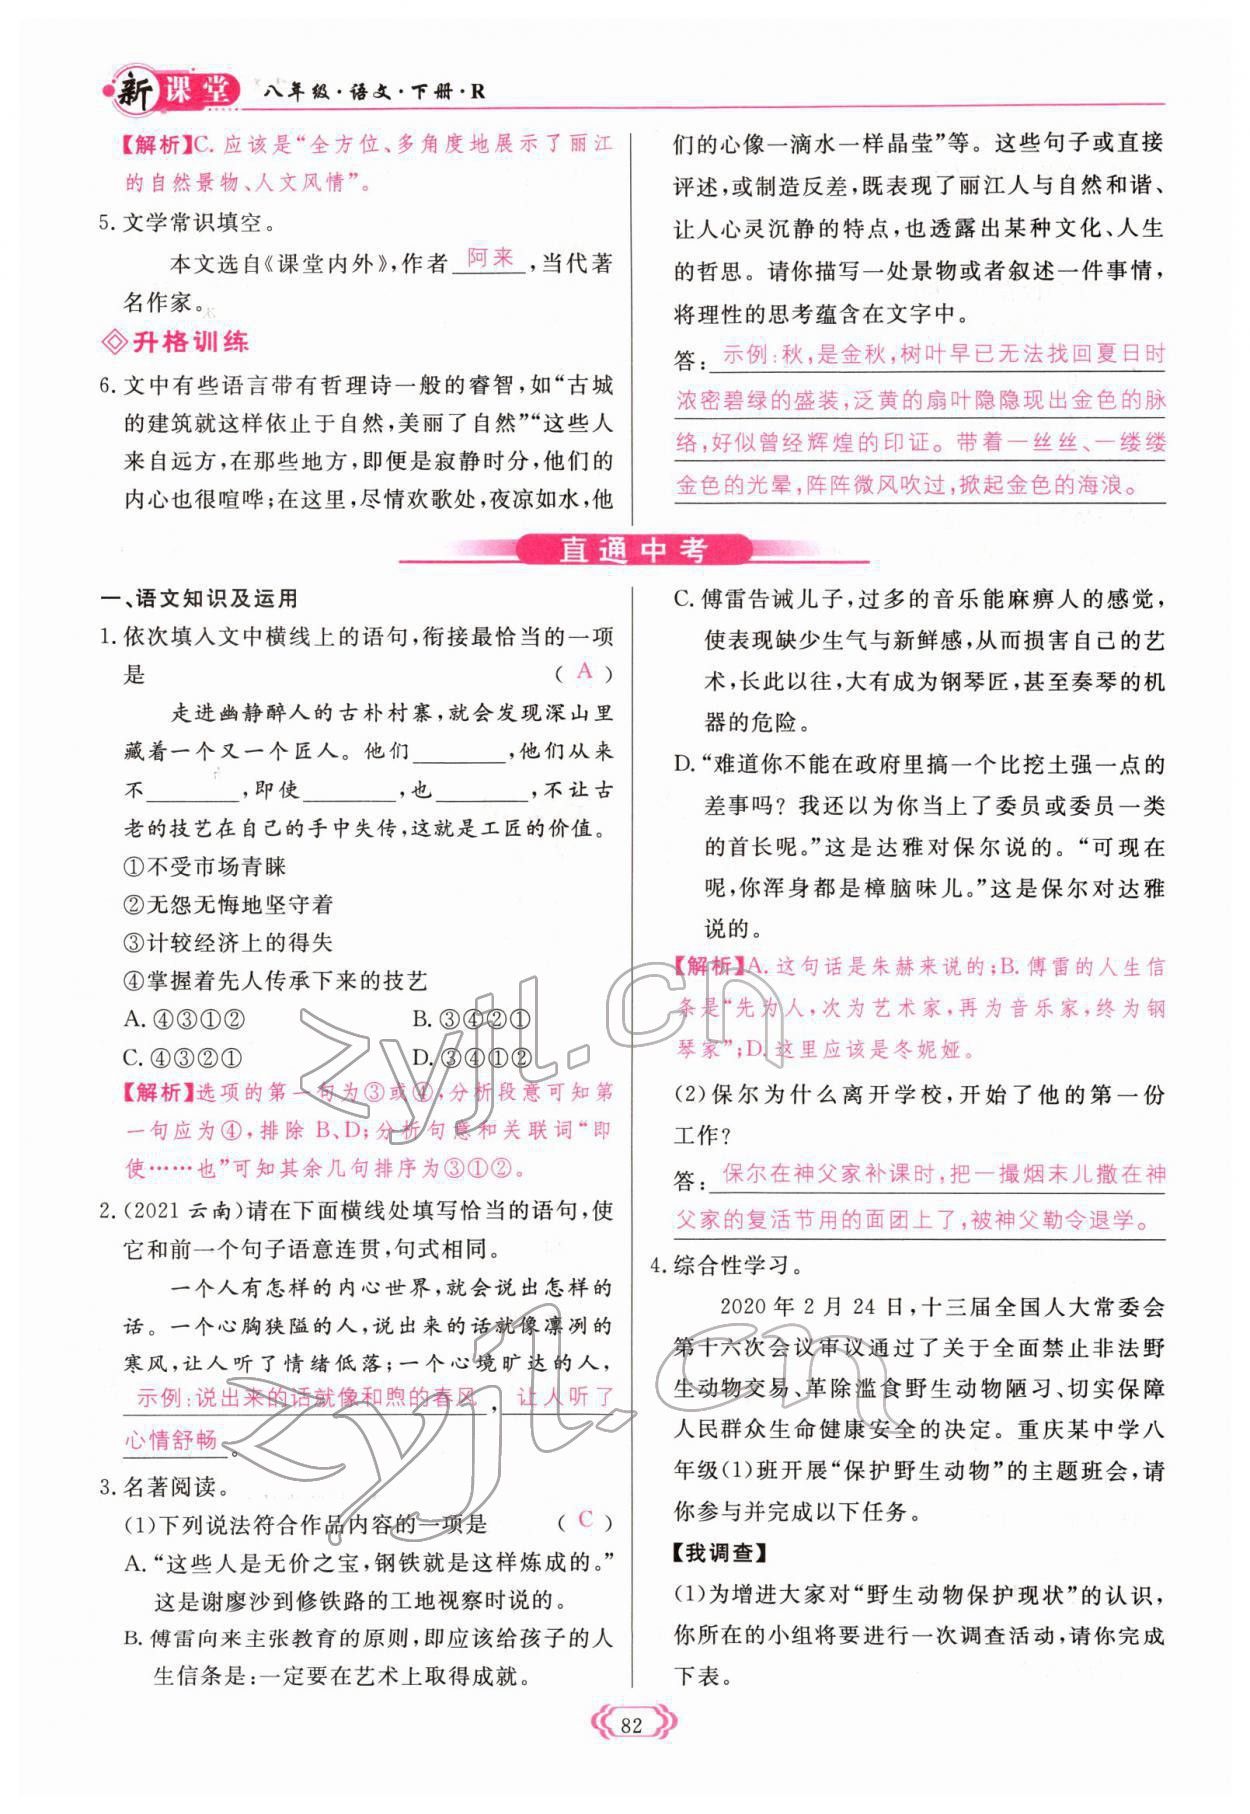 新课堂 八年级·语文·下册·R
【解析】C. 应该是“全方位、多角度地展示了丽江
的自然景物、人文风情”。
5. 文学常识填空。
本文选自《课堂内外》,作者 阿来 ,当代著
名作家。
升格训练
6. 文中有些语言带有哲理诗一般的睿智,如“古城
的建筑就这样依止于自然,美丽了自然”“这些人
来自远方,在那些地方,即便是寂静时分,他们的
内心也很喧哗;在这里,尽情欢歌处,夜凉如水,他
们的心像一滴水一样晶莹”等。这些句子或直接
评述,或制造反差,既表现了丽江人与自然和谐、
让人心灵沉静的特点,也透露出某种文化、人生
的哲思。请你描写一处景物或者叙述一件事情,
将理性的思考蕴含在文字中。
答: 示例:秋,是金秋,树叶早已无法找回夏日时
浓密碧绿的盛装,泛黄的扇叶隐隐现出金色的脉
络,好似曾经辉煌的印证。带着一丝丝、一缕缕
金色的光晕,阵阵微风吹过,掀起金色的海浪。
直通中考
一、语文知识及运用
1. 依次填入文中横线上的语句,衔接最恰当的一项
是 ( A )
走进幽静醉人的古朴村寨,就会发现深山里
藏着一个又一个匠人。他们________,他们从来
不________,即使________,也________,不让古
老的技艺在自己的手中失传,这就是工匠的价值。
①不受市场青睐
②无怨无悔地坚守着
③计较经济上的得失
④掌握着先人传承下来的技艺
A. ④③①② B. ③④②①
C. ④③②① D. ③④①②
【解析】选项的第一句为③或④,分析段意可知第
一句应为④,排除 B、D;分析句意和关联词“即
使……也”可知其余几句排序为③①②。
2. (2021 云南)请在下面横线处填写恰当的语句,使
它和前一个句子语意连贯,句式相同。
一个人有怎样的内心世界,就会说出怎样的
话。一个心胸狭隘的人,说出来的话就像凛冽的
寒风,让人听了情绪低落;一个心境旷达的人,
示例:说出来的话就像和煦的春风 , 让人听了
心情舒畅 。
3. 名著阅读。
(1)下列说法符合作品内容的一项是 ( C )
A. “这些人是无价之宝,钢铁就是这样炼成的。”
这是谢廖沙到修铁路的工地视察时说的。
B. 傅雷向来主张教育的原则,即应该给孩子的人
生信条是:一定要在艺术上取得成就。
C. 傅雷告诫儿子,过多的音乐能麻痹人的感觉,
使表现缺少生气与新鲜感,从而损害自己的艺
术,长此以往,大有成为钢琴匠,甚至奏琴的机
器的危险。
D. “难道你不能在政府里搞一个比挖土强一点的
差事吗?我还以为你当上了委员或委员一类
的首长呢。”这是达雅对保尔说的。“可现在
呢,你浑身都是樟脑味儿。”这是保尔对达雅
说的。
【解析】A. 这句话是朱赫来说的;B. 傅雷的人生信
条是“先为人,次为艺术家,再为音乐家,终为钢
琴家”;D. 这里应该是冬妮娅。
(2)保尔为什么离开学校,开始了他的第一份
工作?
答: 保尔在神父家补课时,把一撮烟末儿撒在神
父家的复活节用的面团上了,被神父勒令退学。
4. 综合性学习。
2020 年 2 月 24 日,十三届全国人大常委会
第十六次会议审议通过了关于全面禁止非法野
生动物交易、革除滥食野生动物陋习、切实保障
人民群众生命健康安全的决定。重庆某中学八
年级(1)班开展“保护野生动物”的主题班会,请
你参与并完成以下任务。
【我调查】
(1)为增进大家对“野生动物保护现状”的认识,
你所在的小组将要进行一次调查活动,请你完成
下表。
82
zyjl.cn
zyjl.cn